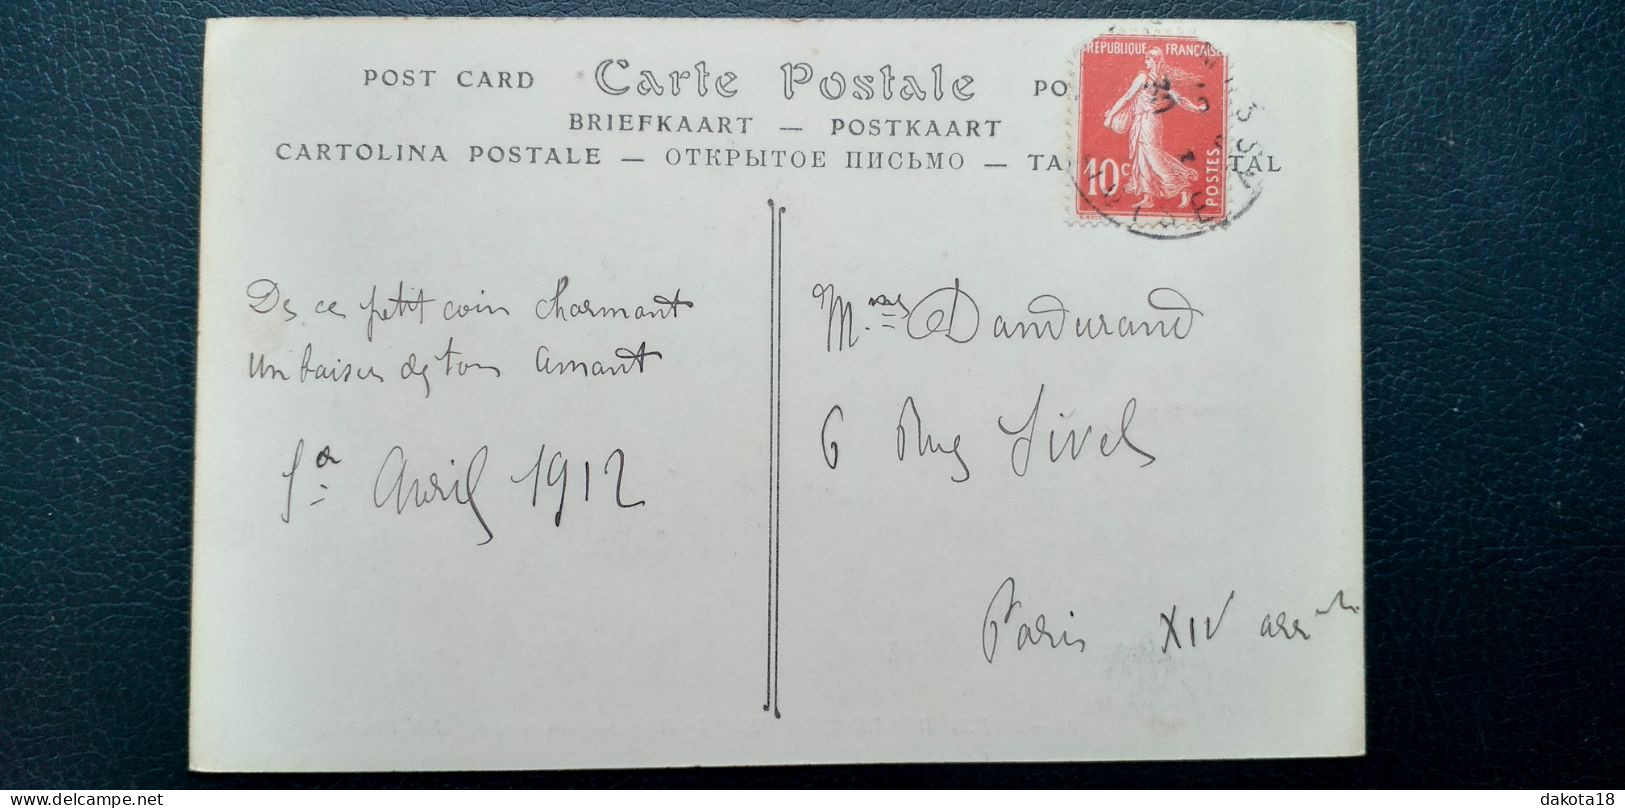 POST CARD Carte Postale PO
BRIEFKAART — POSTKAART
CARTOLINA POSTALE — ОТКРЫТОЕ ПИСЬМО — TA TAL
REPUBLIQUE FRANÇAISE
10c
POSTES
De ce petit coin charmant
Un baiser de ton amant
1er Avril 1912
Mme Dandurand
6 Rue Sivel
Paris XIV arrt
dakota18